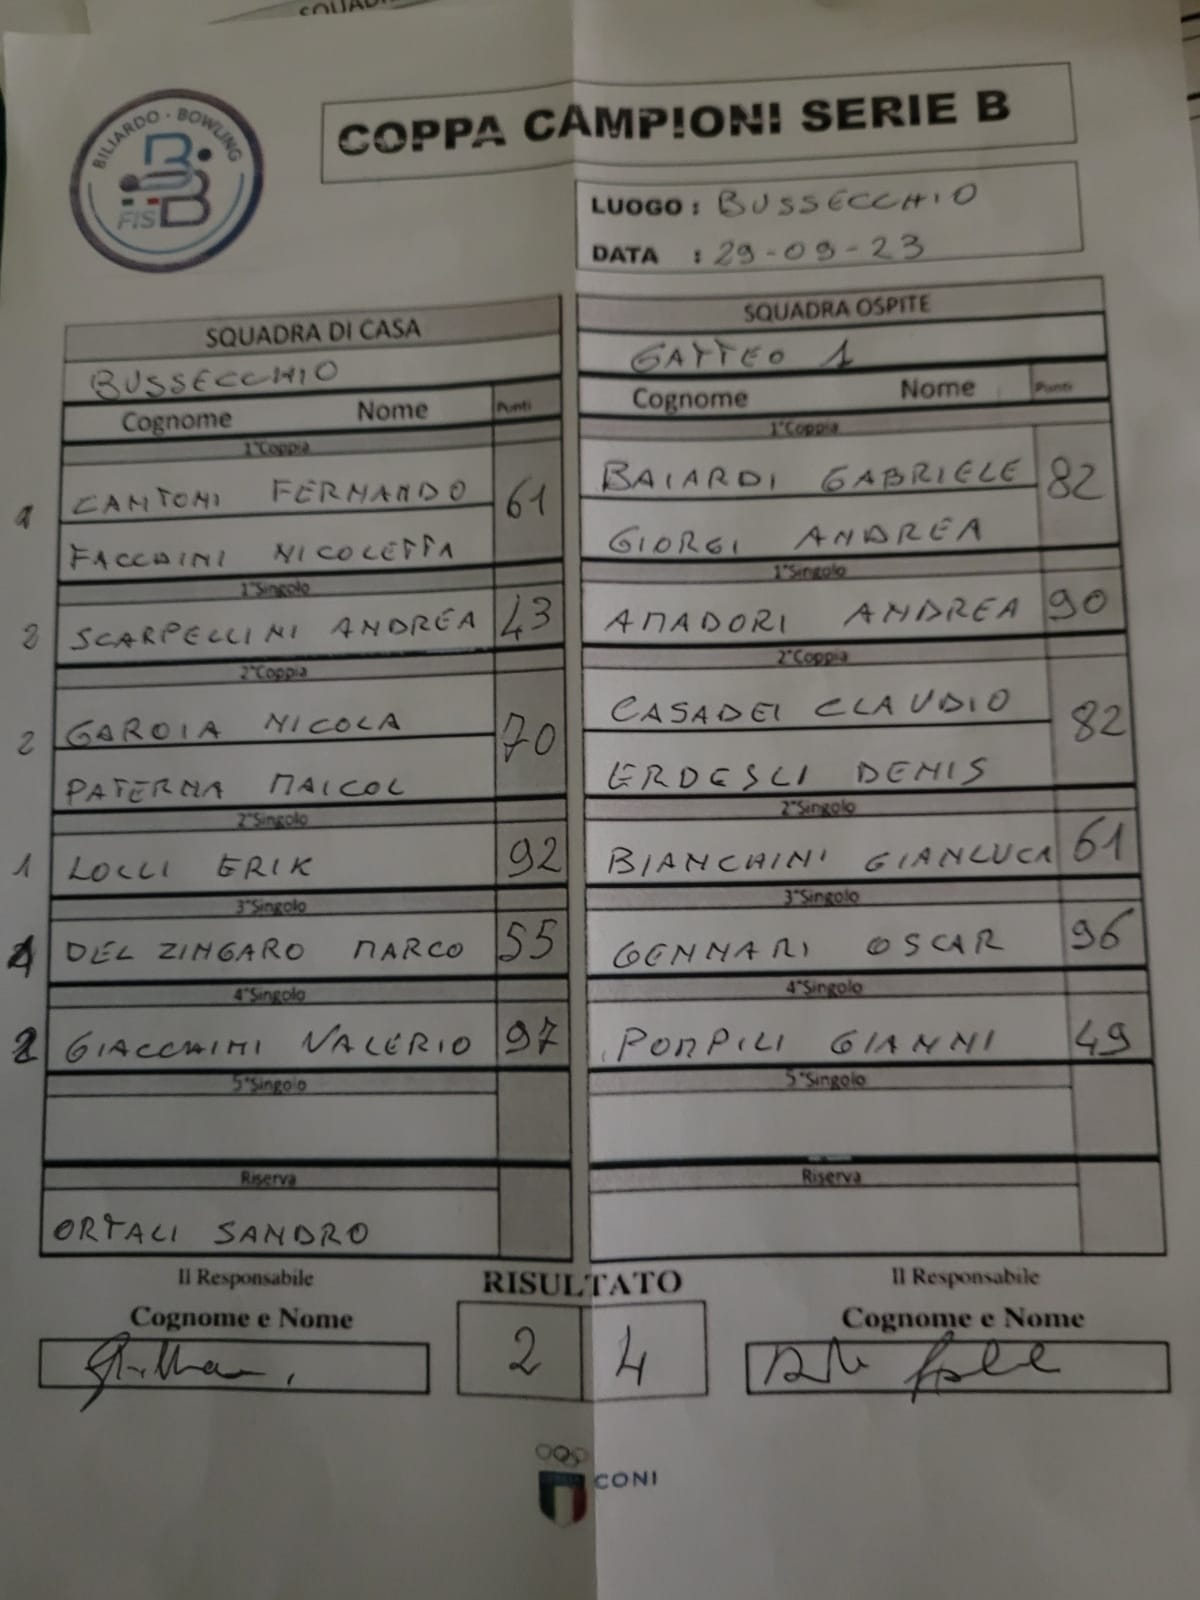 SQUADR
BILIARDO · BOWLING
FISBB
COPPA CAMPIONI SERIE B
LUOGO : BUSSECCHIO
DATA : 29-09-23
SQUADRA DI CASA
BUSSECCHIO
Cognome Nome Punti
1°Coppia
1 CANTONI FERNANDO 61
FACCHINI NICOLETTA
1°Singolo
2 SCARPELLINI ANDREA 43
2°Coppia
2 GAROIA NICOLA 70
PATERNA MAICOL
2°Singolo
1 LOLLI ERIK 92
3°Singolo
DEL ZINGARO MARCO 55
4°Singolo
2 GIACCHINI VALERIO 97
5°Singolo
Riserva
ORTALI SANDRO
SQUADRA OSPITE
GATTEO 1
Cognome Nome Punti
1°Coppia
BAIARDI GABRIELE 82
GIORGI ANDREA
1°Singolo
AMADORI ANDREA 90
2°Coppia
CASADEI CLAUDIO 82
ERDESLI DENIS
2°Singolo
BIANCHINI GIANLUCA 61
3°Singolo
GENNARI OSCAR 96
4°Singolo
POMPILI GIANNI 49
5°Singolo
Riserva
Il Responsabile
Cognome e Nome
RISULTATO
2 4
Il Responsabile
Cognome e Nome
CONI